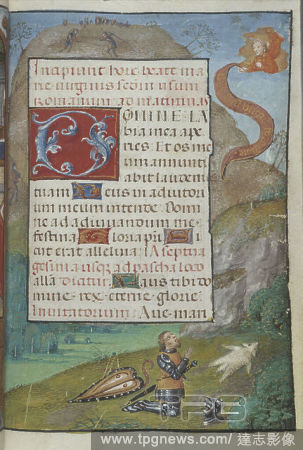 Incipiunt hore beate ma
rie virginis scdm usum
romanum ad matutinas
DOMINE LA
bia mea ape
ries Et os me
um annunti
abit laudem
tuam Deus in adiutori
um meum intende Domi
ne ad adiuuandum me
festina Gloria pri Si
cut erat alleluia A septua
gesima usq ad pascha loco
alla dicitur Laus tibi do
mine rex eterne glorie
Inuitatorium Aue mari
TPG
www.tpgnews.com/達志影像